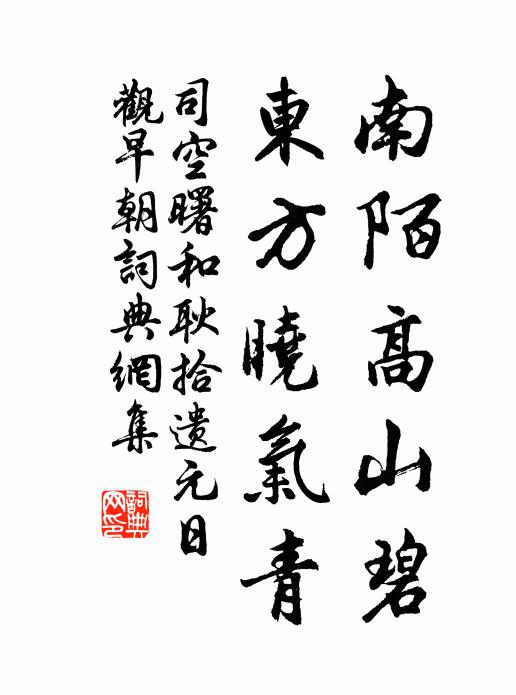 南陌高山碧
東方曉氣青
司空曙和耿拾遺元日
觀早朝詞典網集
詞典網印